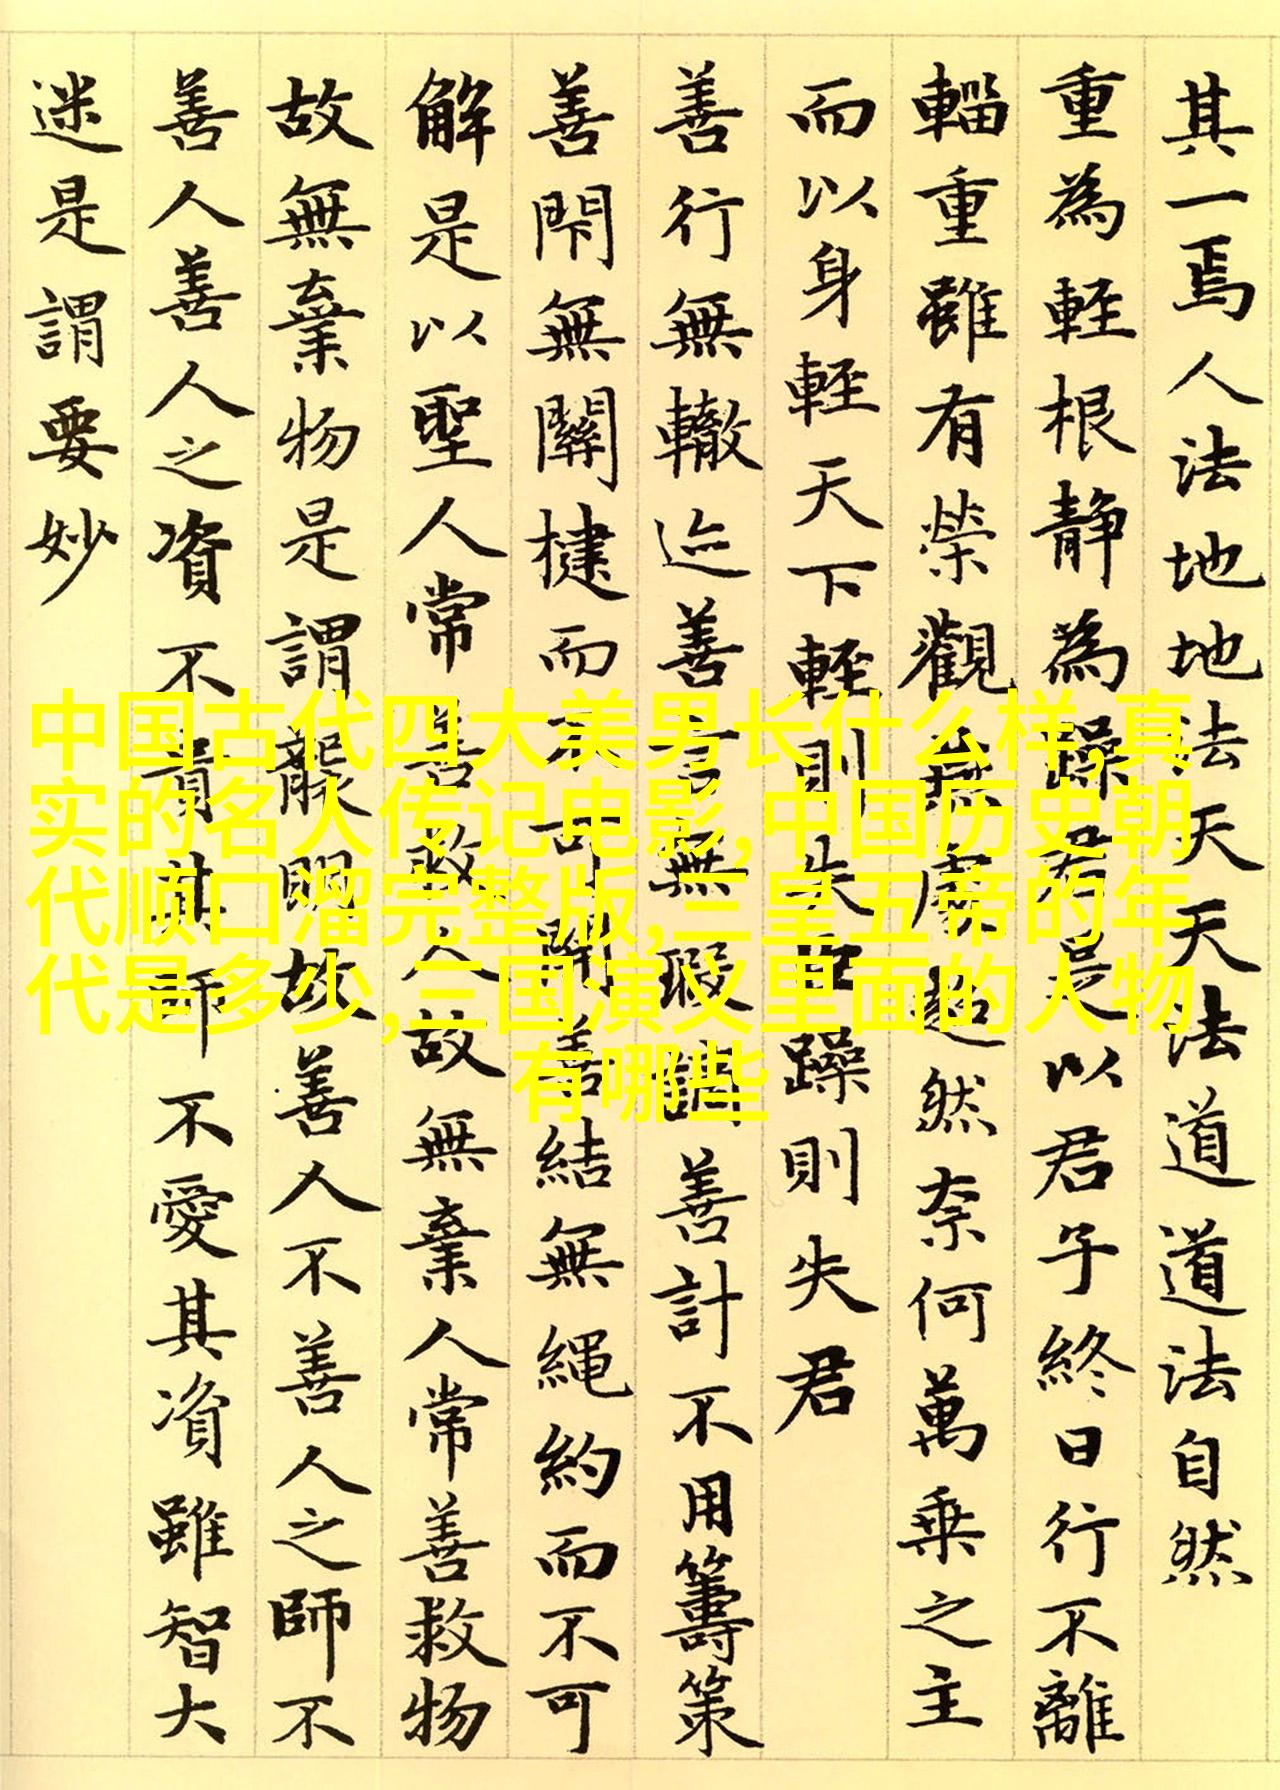 其一焉人法地地法天天法道道法自然
重為輕根静為躁君是以君子終日行不離
輜重雖有榮觀燕處超然奈何萬乗之主
而以身輕天下輕則失臣躁則失君
善行無轍迹善言無瑕謫善計不用籌策
善閇無關楗而不可開善結無繩約而不可
解是以聖人常善救人故無棄人常善救物
故無棄物是謂襲明故善人不善人之師不
善人善人之資不貴其師不愛其資雖智大
迷是謂要妙
中国古代四大美男长什么样,真
实的名人传记电影,中国历史朝
代顺口溜完整版,三皇五帝的年
代是多少,三国演义里面的人物
有哪些